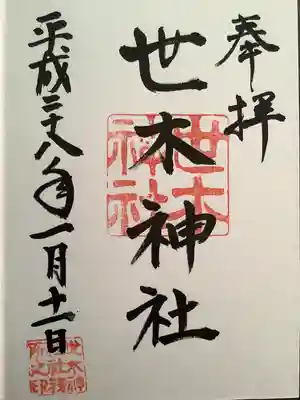 奉拝
世木神社
世木
神社
平成二十八年一月十一日